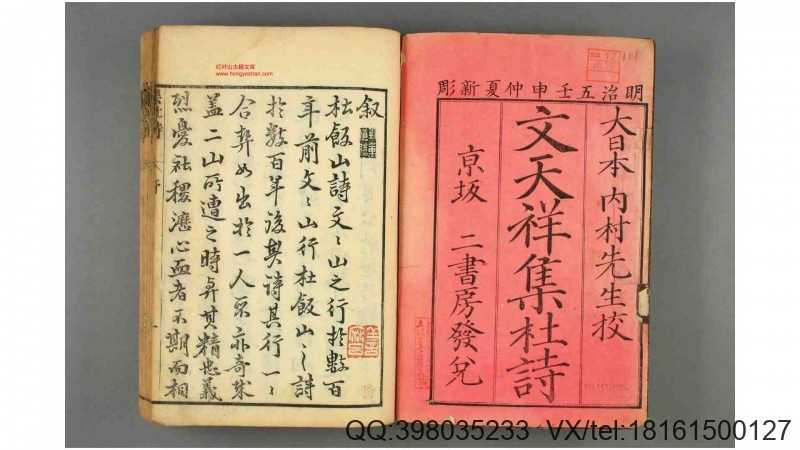 明治五壬申仲夏新彫
大日本 内村先生校
文天祥集杜詩
京坂 二書房發兌
叙
杜飯山詩文〻山之行於數百
年前文〻山行杜飯山之詩
於數百年後其詩其行一〻
合契如出於一人豈亦奇矣
蓋二山所遭之時與其精忠義
烈憂社稷瀝心血者不期而相
红叶山古籍文库
www.hongyeshan.com
QQ:398035233 VX/tel:18161500127